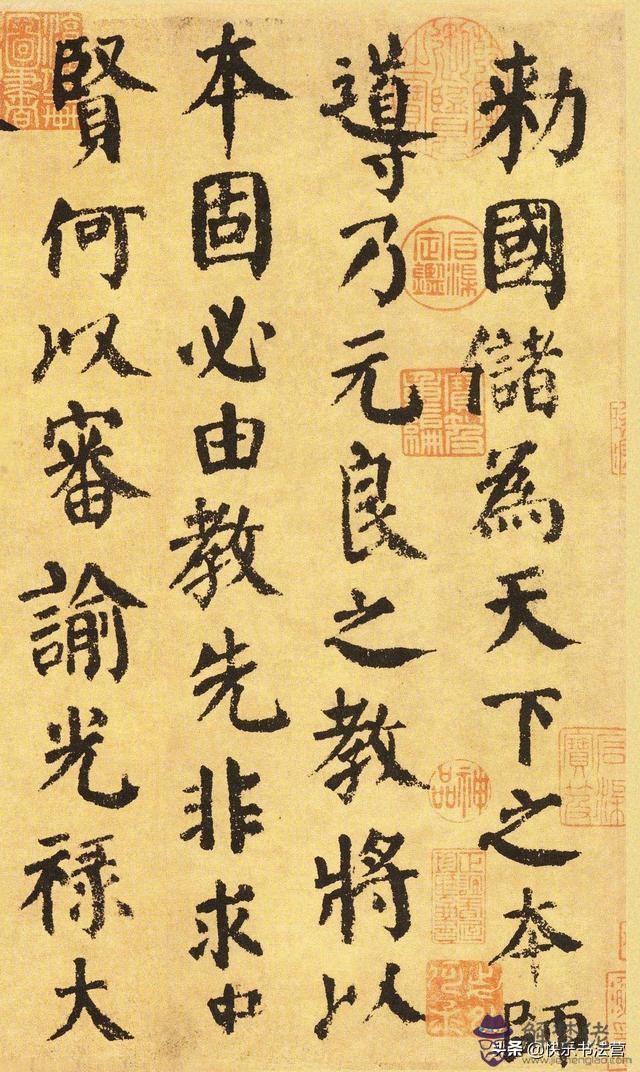 勅國儲為天下之本師
導乃元良之教將以
本固必由教先非求中
賢何以審諭光祿大
神品
头条 @快乐书法营